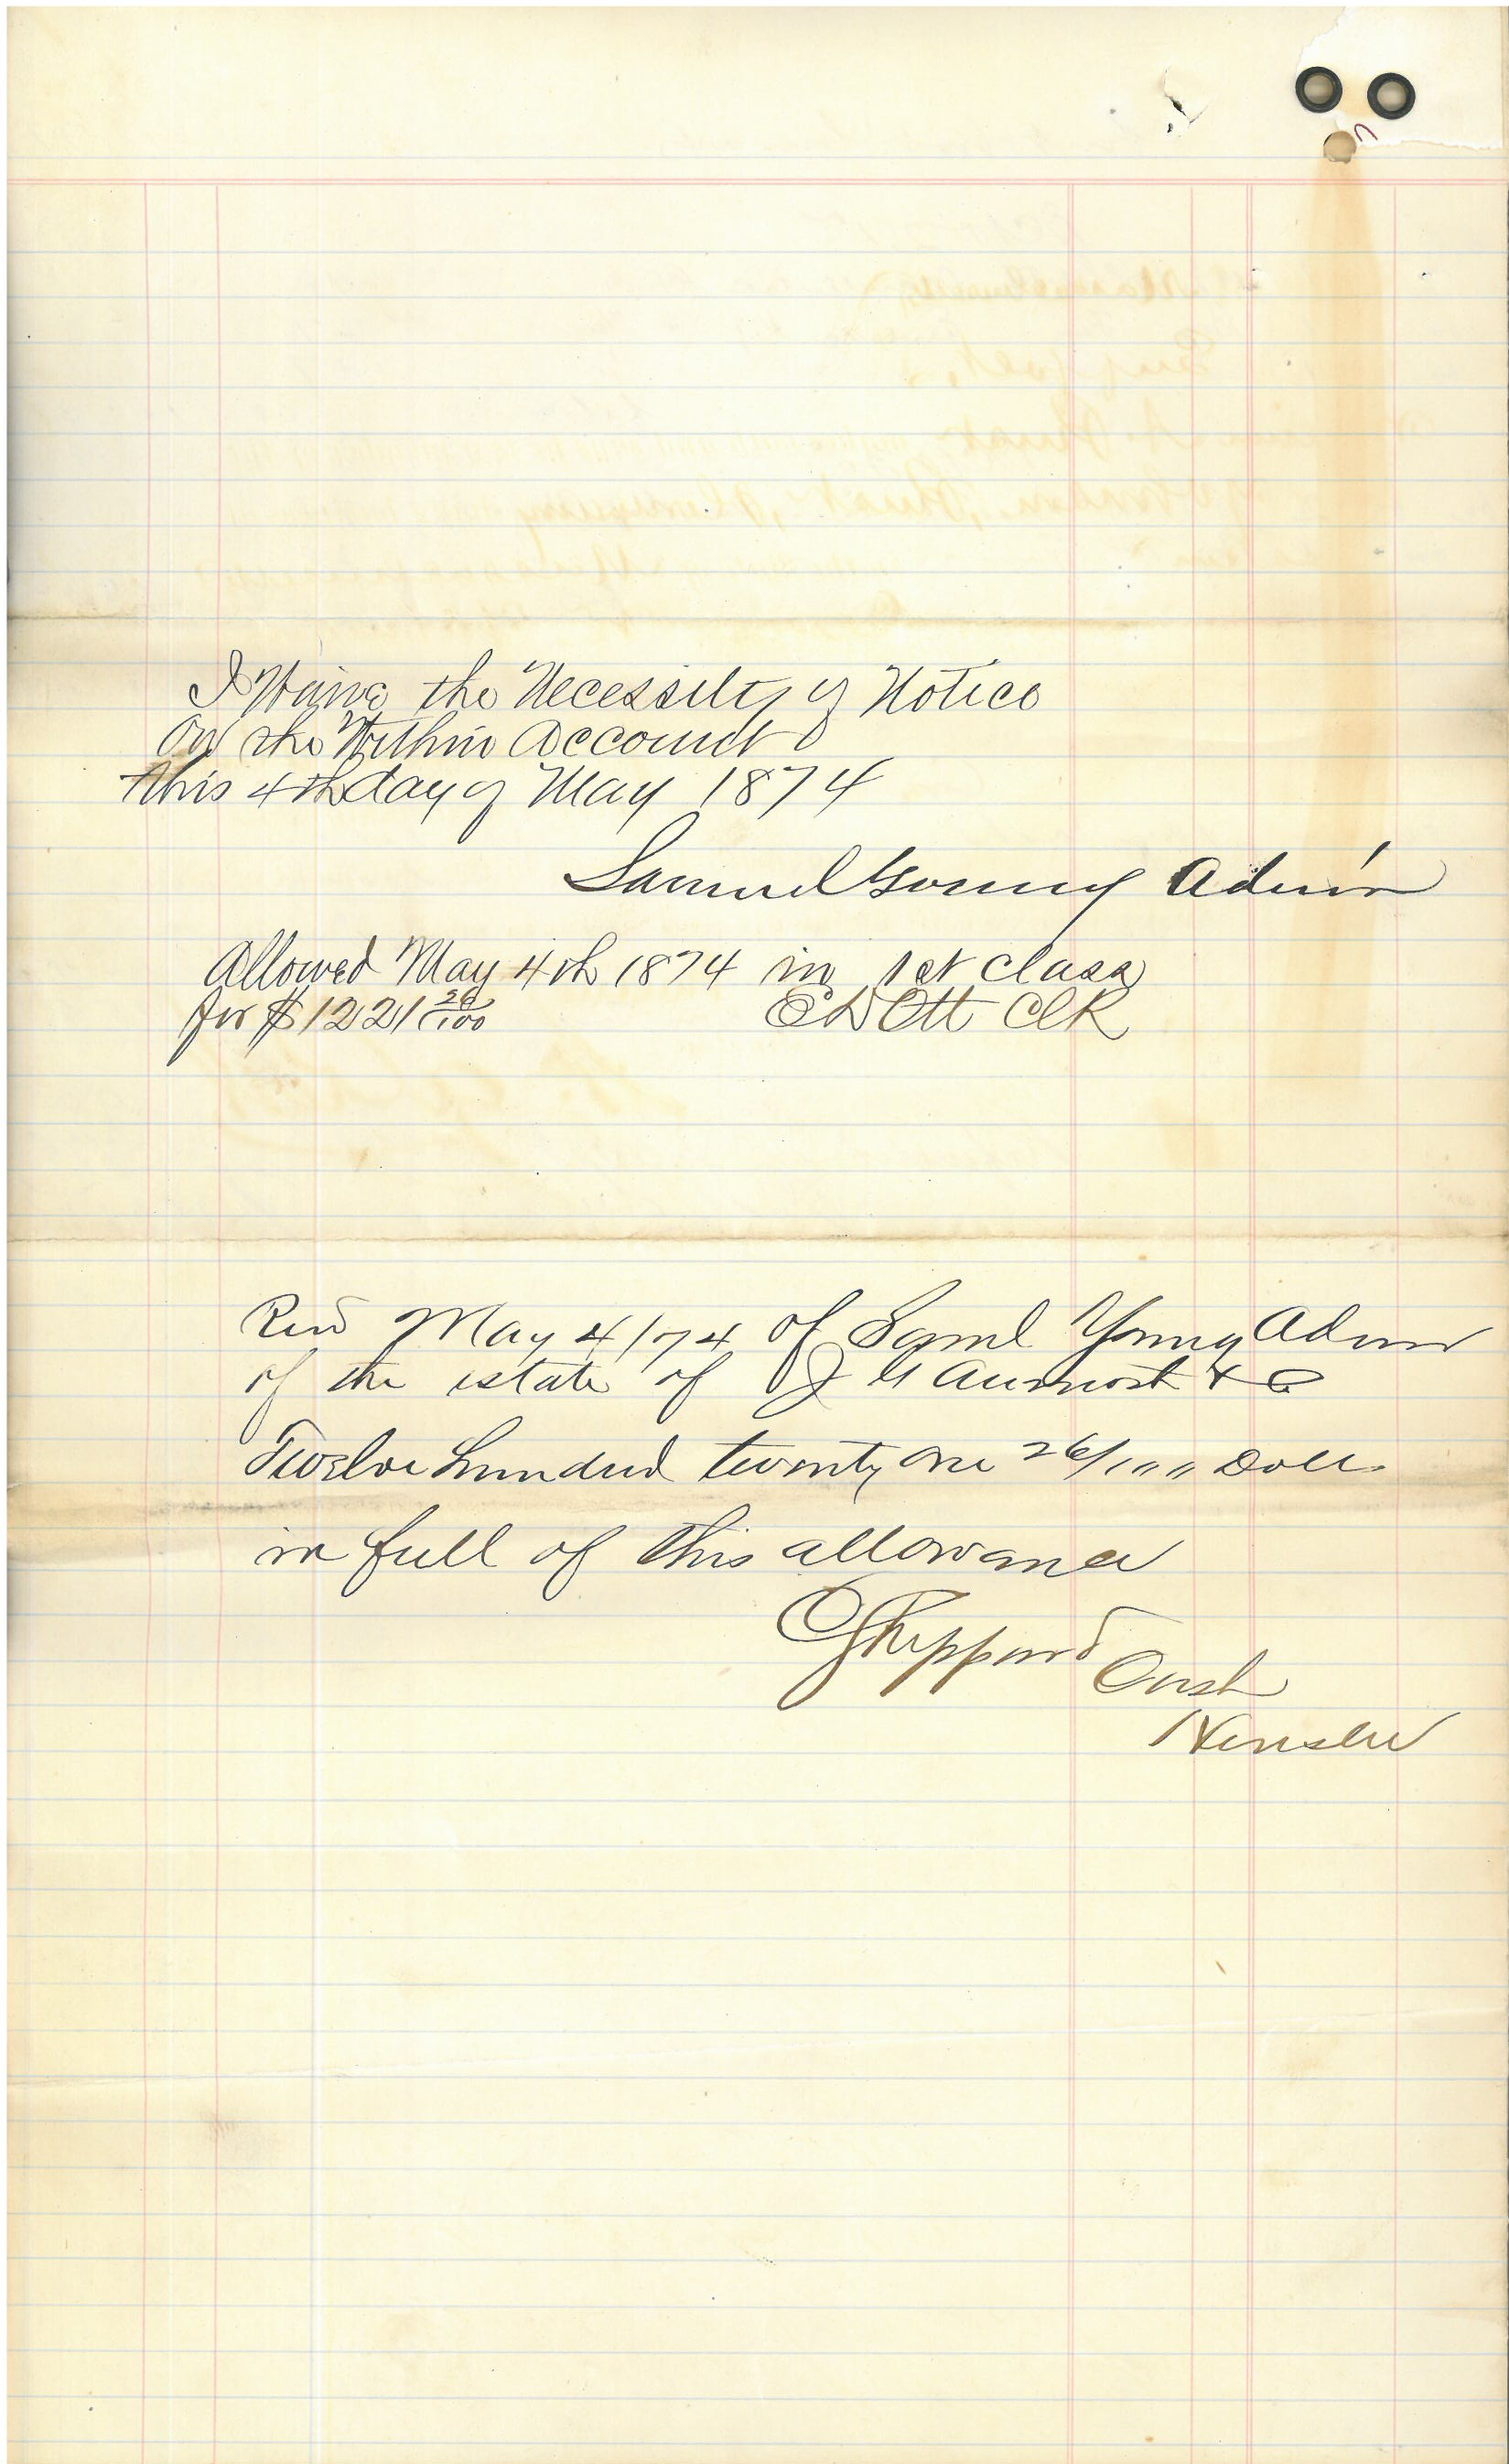 I Waive the Necessity of Notice
on the Within Account
this 4th day of May 1874
Samuel Young Admr
Allowed May 4th 1874 in 1st class
for $1221 26/100 E D Ott Clk
Recd May 4/74 of Saml Young Admr
of the estate of J G Aurnost & Co
Twelve hundred twenty one 26/100 Dolls
in full of this allowance
C Sheppard Cash